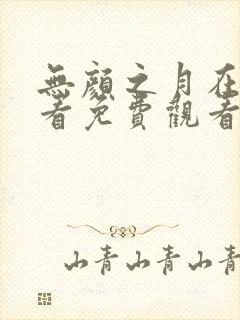 無顔之月在
看免費觀看
山青山青山青